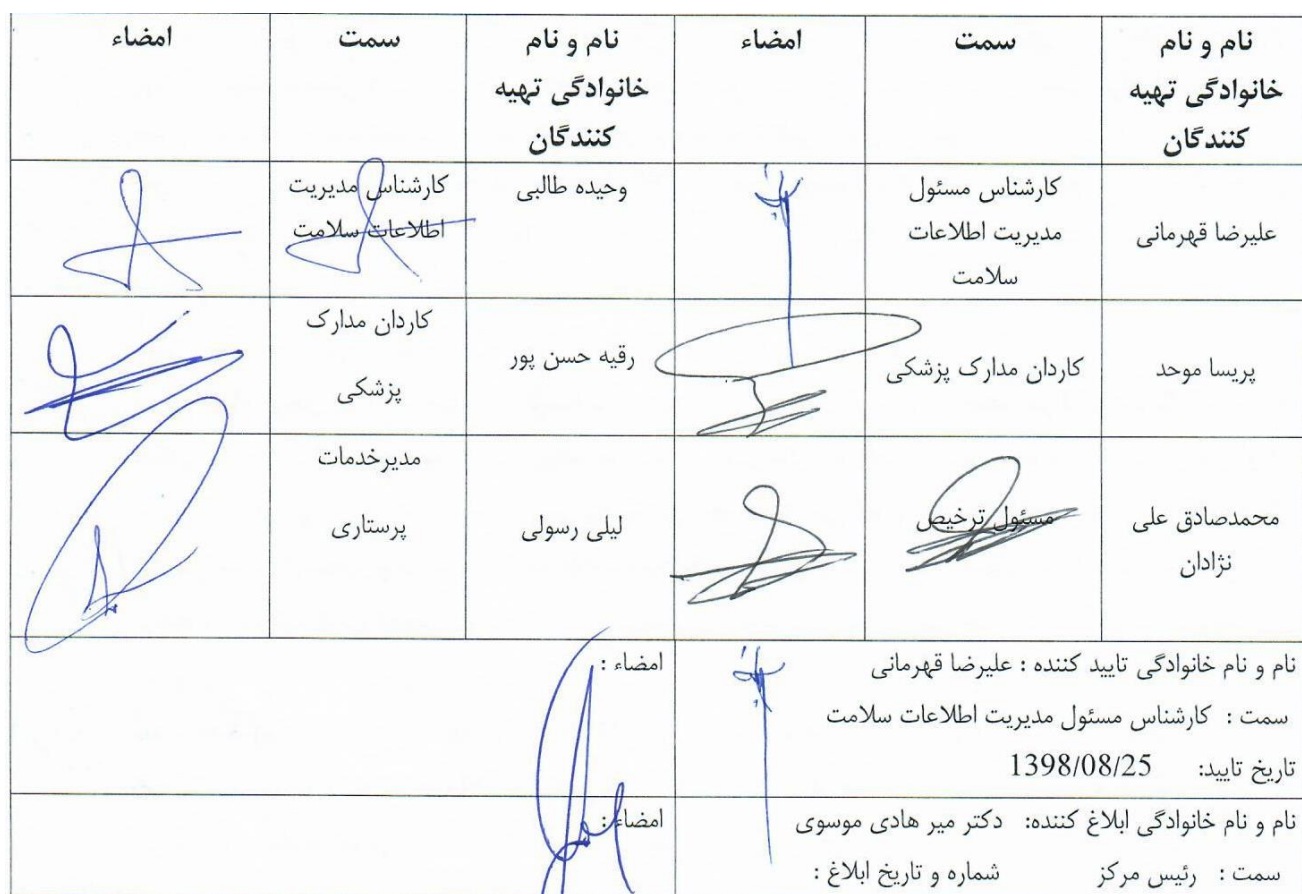 نام و نام
خانوادگی تهیه
کنندگان
سمت
امضاء
نام و نام
خانوادگی تهیه
کنندگان
سمت
امضاء
علیرضا قهرمانی
کارشناس مسئول
مدیریت اطلاعات
سلامت
وحیده طالبی
کارشناس مدیریت
اطلاعات سلامت
پریسا موحد
کاردان مدارک پزشکی
رقیه حسن پور
کاردان مدارک
پزشکی
محمدصادق علی
نژادان
مسئول ترخیص
لیلی رسولی
مدیرخدمات
پرستاری
نام و نام خانوادگی تایید کننده : علیرضا قهرمانی
سمت : کارشناس مسئول مدیریت اطلاعات سلامت
تاریخ تایید: 1398/08/25
امضاء :
نام و نام خانوادگی ابلاغ کننده: دکتر میر هادی موسوی
سمت : رئیس مرکز شماره و تاریخ ابلاغ :
امضاء :